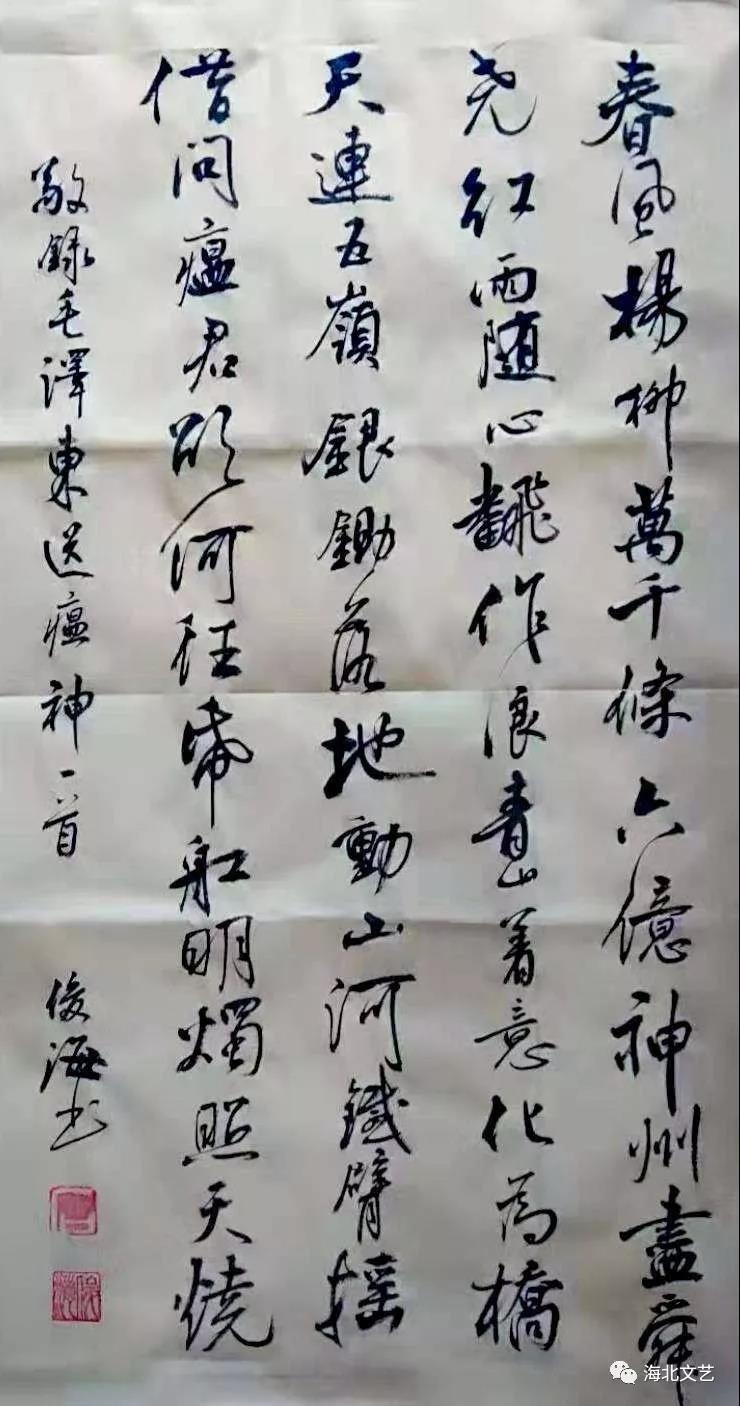 春風楊柳萬千條六億神州盡舜
尧红雨随心飜作浪青山着意化為橋
天連五嶺銀鋤落地動山河鐵臂摇
借问瘟君欲何往帋船明燭照天燒
敬録毛澤東送瘟神一首
俊海书
海北文艺